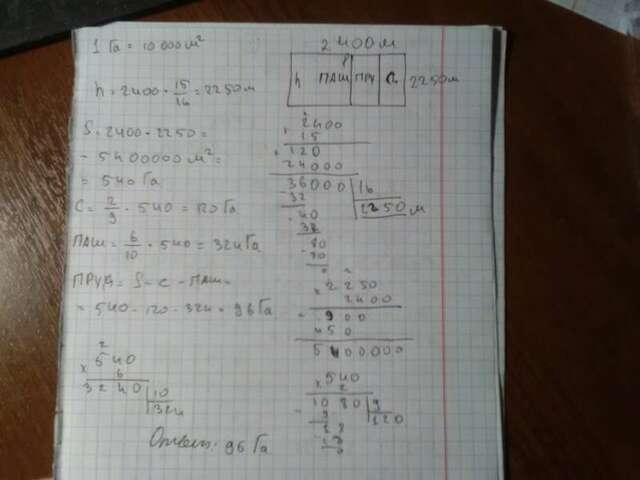 1 Га = 10 000 м²
h = 2400 · 15/16 = 2250 м
S = 2400 · 2250 =
= 5400000 м² =
= 540 Га
С = 2/9 · 540 = 120 Га
ПАШ = 6/10 · 540 = 324 Га
ПРУД = S - С - ПАШ =
= 540 - 120 - 324 = 96 Га
2
540
× 6
3240 | 10
324
Ответ: 96 Га
2400 м
h ПАШ ПРУ С 2250 м
2400
× 15
120
24000
36000 | 16
32 2250 м
40
32
80
80
0
2250
× 2400
900
450
5400000
540
× 2
1080 | 9
9 120
18
18
0